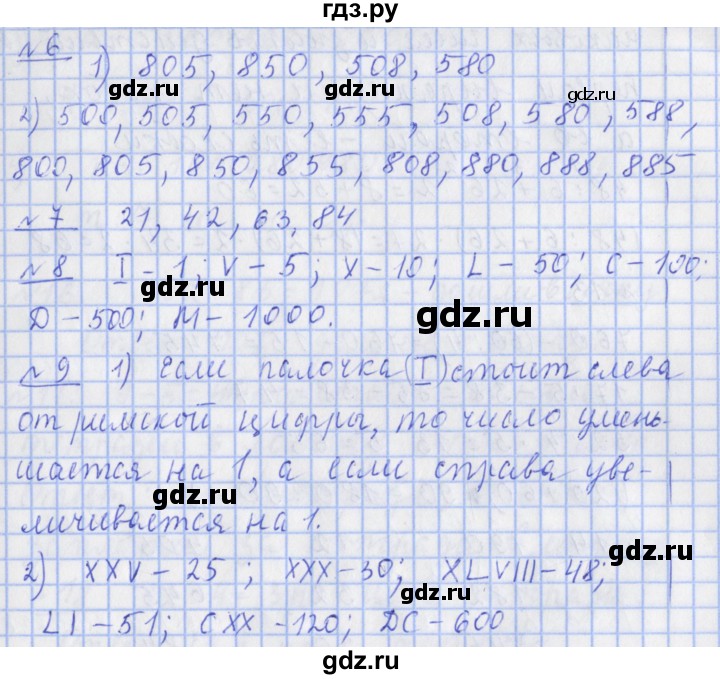 гдз.ру
№6 1) 805, 850, 508, 580
gdz.ru gdz.ru gdz.ru
2) 500, 505, 550, 555, 508, 580, 588,
800, 805, 850, 855, 808, 880, 888, 885
gdz.ru gdz.ru
№7 21, 42, 63, 84
№8 I - 1; V - 5; X - 10; L - 50; C - 100;
D - 500; M - 1000.
gdz.ru
№9 1) Если палочка (I) стоит слева
от римской цифры, то число умень-
шается на 1, а если справа уве-
gdz.ru
личивается на 1.
2) XXV - 25 ; XXX - 30; XLVIII - 48;
gdz.ru
LI - 51; CXX - 120; DC - 600
gdz.ru gdz.ru